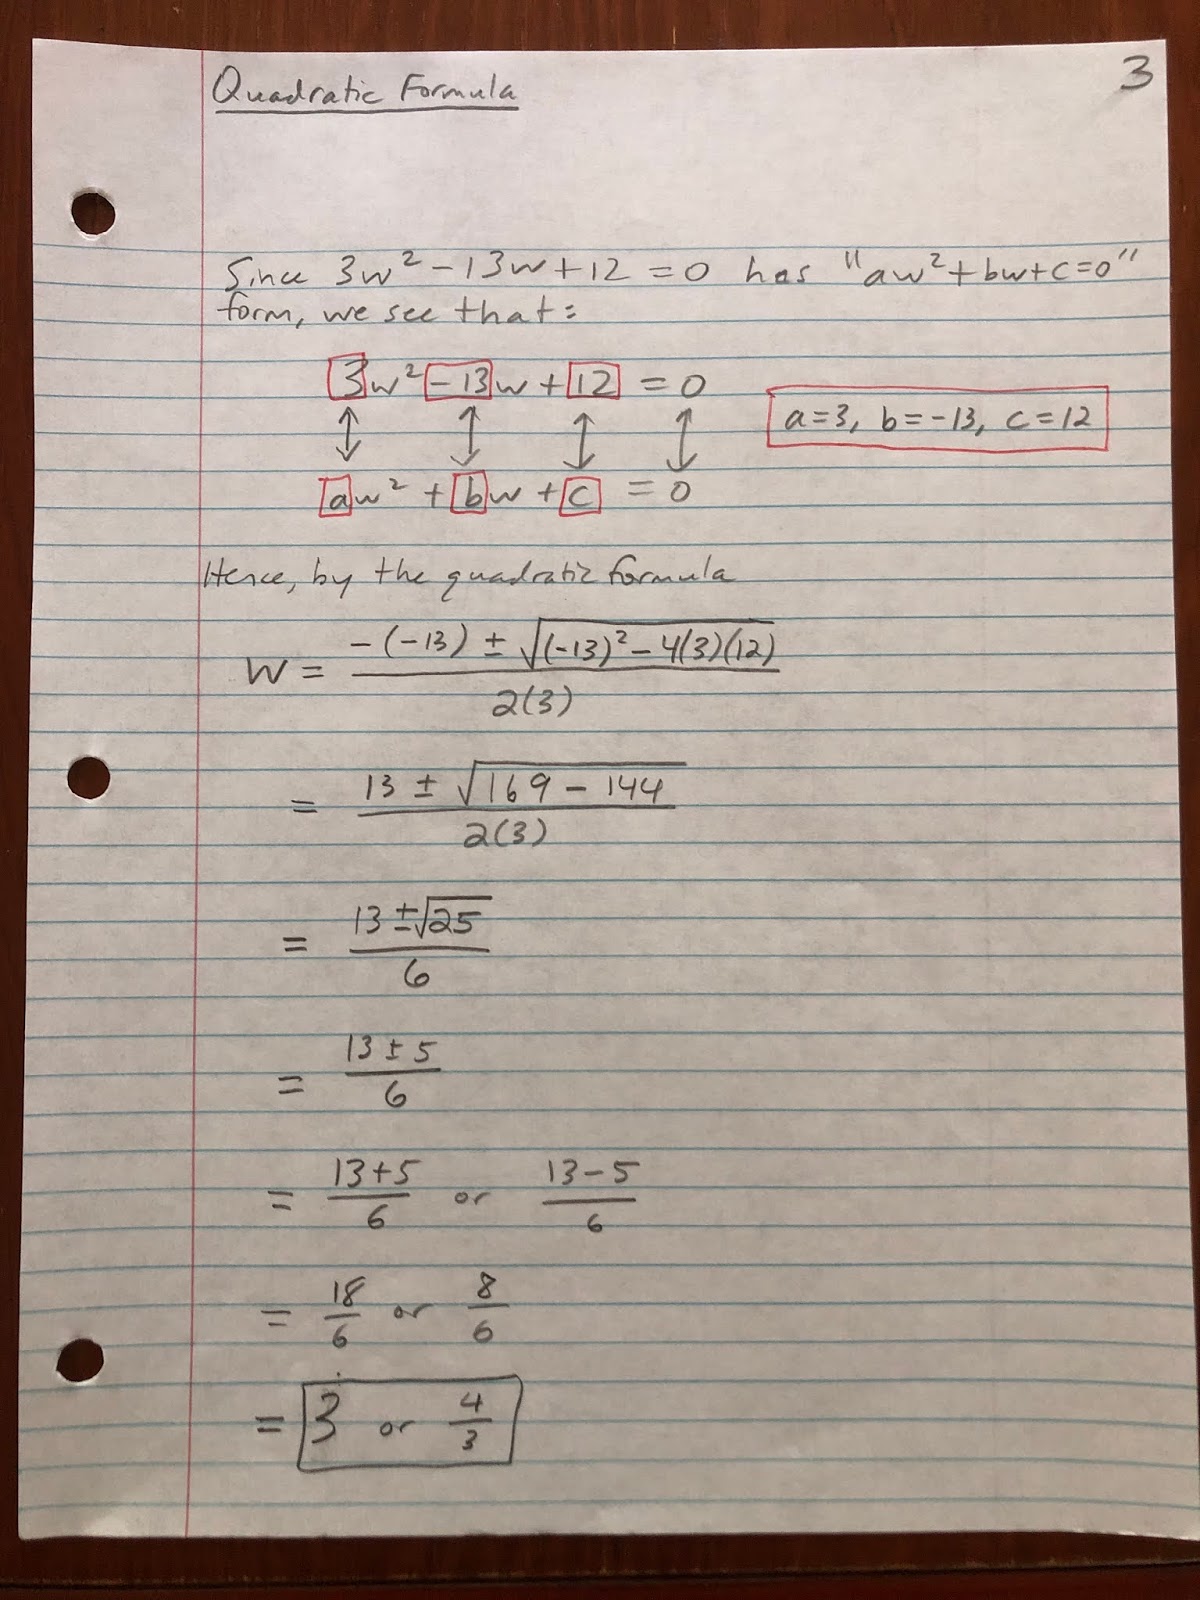 Quadratic Formula
3
Since 3w² - 13w + 12 = 0 has "aw² + bw + c = 0"
form, we see that:
3w² - 13w + 12 = 0
a = 3, b = -13, c = 12
↕ ↕ ↕ ↕
aw² + bw + c = 0
Hence, by the quadratic formula
w = (-(-13) ± √((-13)² - 4(3)(12))) / 2(3)
= (13 ± √(169 - 144)) / 2(3)
= (13 ± √25) / 6
= (13 ± 5) / 6
= (13 + 5) / 6 or (13 - 5) / 6
= 18/6 or 8/6
= 3 or 4/3